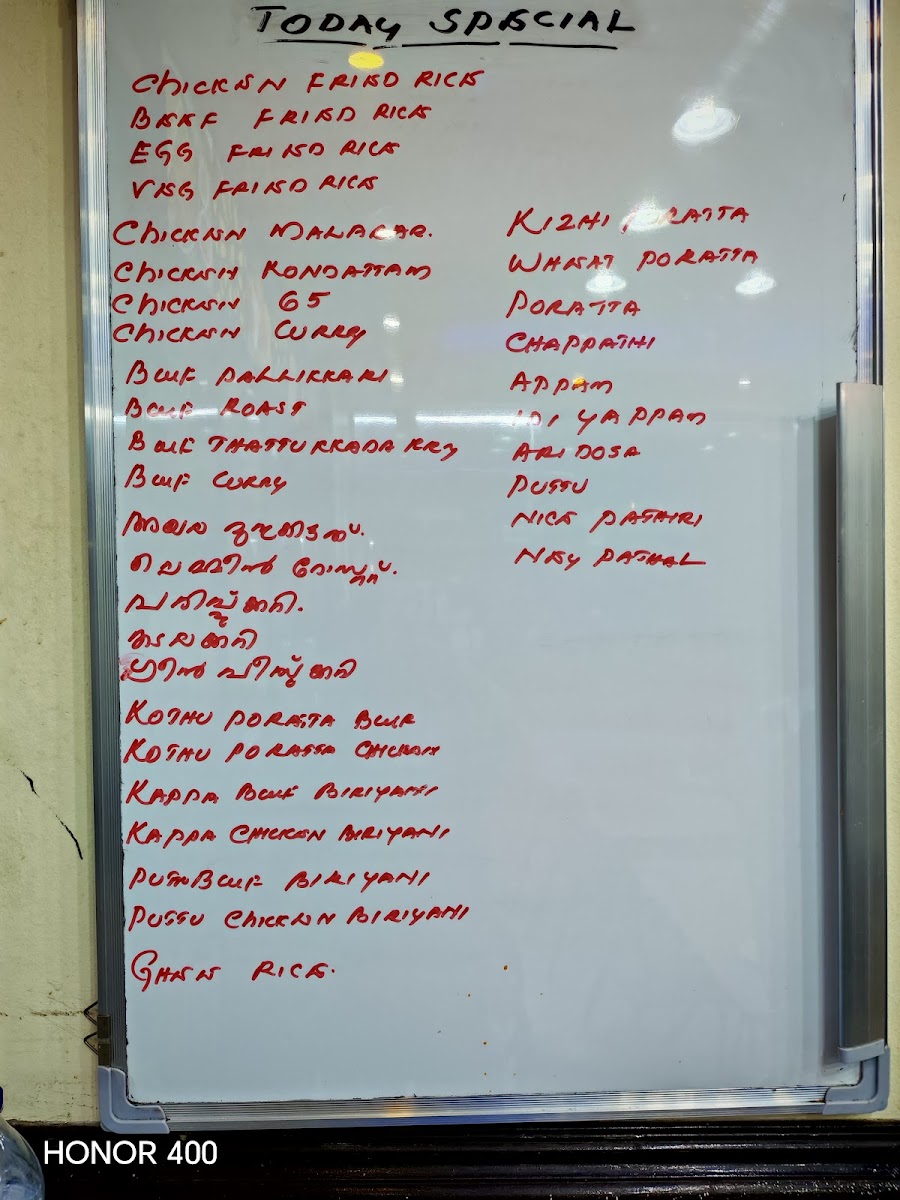 TODAY SPECIAL
CHICKEN FRIED RICE
BEEF FRIED RICE
EGG FRIED RICE
VEG FRIED RICE
CHICKEN MALABAR.
CHICKEN KONDATTAM
CHICKEN 65
CHICKEN CURRY
BEEF PALLIKKARI
BEEF ROAST
BEEF THATTUKKADA KRY
BEEF CURRY
അയല
ചെമ്മീൻ റോസ്റ്റ്.
പരിപ്പ് കറി.
കടലക്കറി
ഗ്രീൻ പീസ് കറി
KOTHU PORATTA BEEF
KOTHU PORATTA CHICKEN
KAPPA BEEF BIRIYANI
KAPPA CHICKEN BIRIYANI
PUTTU BEEF BIRIYANI
PUTTU CHICKEN BIRIYANI
GHEE RICE.
KIZHI PORATTA
WHEAT PORATTA
PORATTA
CHAPPATHI
APPAM
IDIYAPPAM
ARI DOSA
PUTTU
NICE PATHIRI
NEY PATHAL
HONOR 400